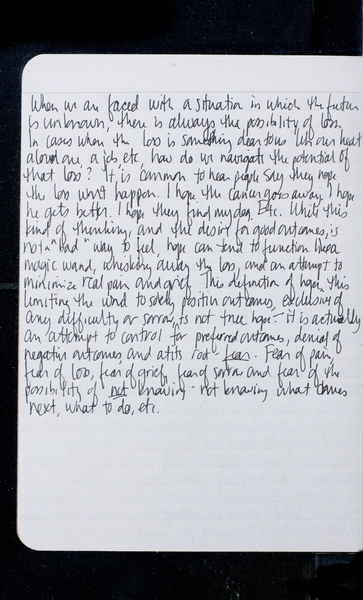 When we are faced with a situation in which the future
is unknown, there is always the possibility of loss.
In cases when the loss is something dear to us like our heart
a loved one, a job, etc. how do we navigate the potential of
that loss? It is common to hear people say they hope
the loss won't happen. I hope the cancer goes away. I hope
he gets better. I hope they find my dog. Etc. While this
kind of thinking, and the desire for good outcomes, is
not a "bad" way to feel, hope can tend to function like a
magic wand, whisking away the loss, and an attempt to
minimize real pain and grief. This definition of hope, this
limiting the word to solely positive outcomes, exclusive of
any difficulty or sorrow, is not true hope - it is actually
an attempt to control for preferred outcomes, denial of
negative outcomes, and at its root - fear. Fear of pain,
fear of loss, fear of grief, fear of sorrow and fear of the
possibility of not knowing - not knowing what comes
next, what to do, etc.